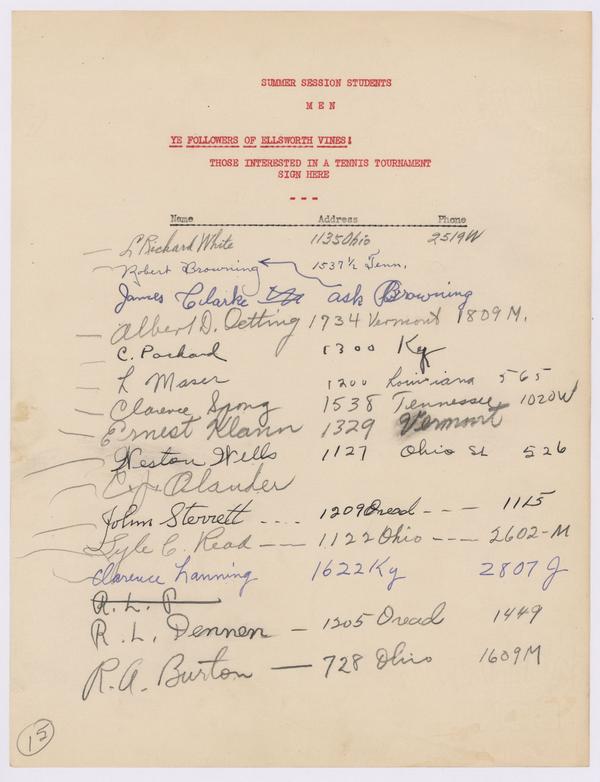 SUMMER SESSION STUDENTS
MEN
YE FOLLOWERS OF ELLSWORTH VINES!
THOSE INTERESTED IN A TENNIS TOURNAMENT
SIGN HERE
---
Name Address Phone
L Richard White 1135 Ohio 2519W
Robert Browning 1537 1/2 Tenn.
James Clarke ask Browning
Albert D. Oetting 1734 Vermont 1809 M.
C. Packard 1300 Ky
L Maser 1200 Louisiana 565
Clarence Spong 1538 Tennessee 1020W
Ernest Klann 1329 Vermont
Weston Wells 1127 Ohio St 526
Olander
John Sterrett .... 1209 Oread --- 1115
Lyle C. Read -- 1122 Ohio ---- 2602-M
Clarence Lanning 1622 Ky 2807 J
R. L. P
R. L. Dennen - 1205 Oread 1449
R. A. Burton - 728 Ohio 1609M
15